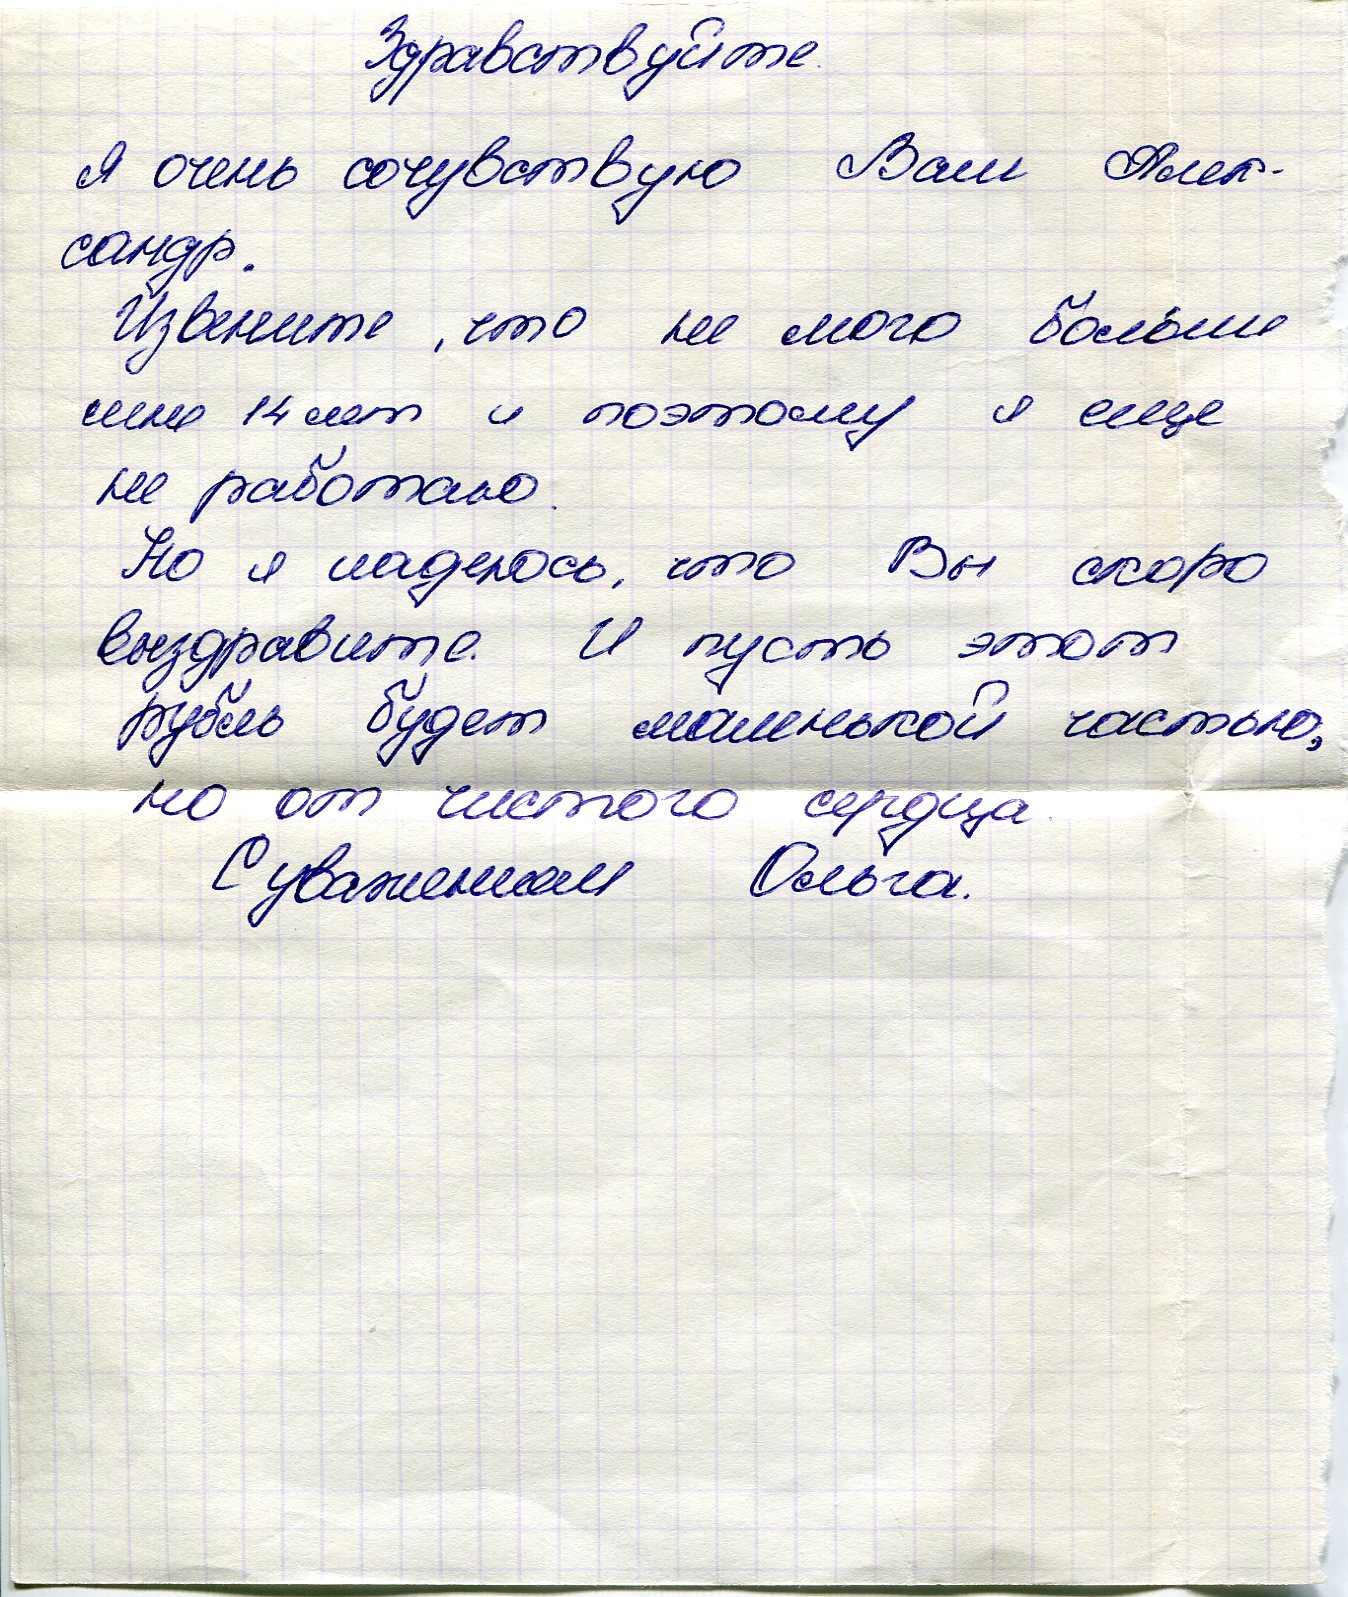 Здравствуйте.
Я очень сочувствую Вам Алек-
сандр.
Извените, что не мого больше
мне 14 лет и поэтому я еще
не работаю.
Но я надеюсь, что Вы скоро
выздравите. И пусть этот
рубль будет маленькой частью,
но от чистого сердца.
С уважением Ольга.